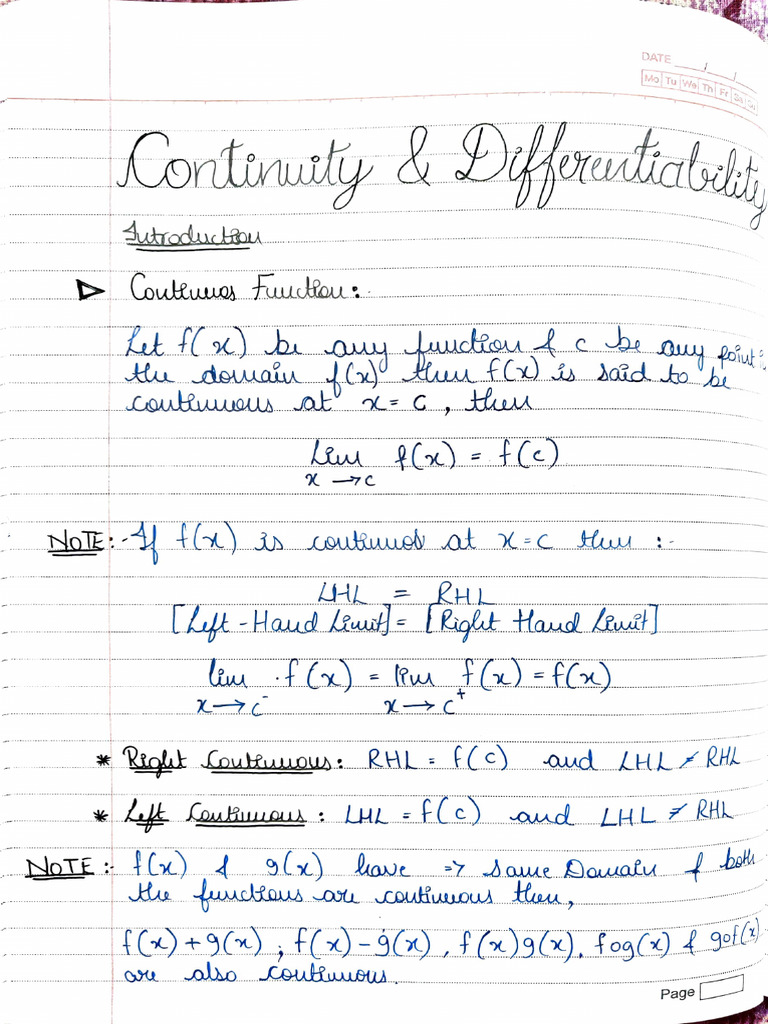 DATE
Mo Tu We Th Fr Sa Su
Continuity & Differentiability
Introduction
Continuos Function:
Let f(x) be any function & c be any point i
the domain f(x) then f(x) is said to be
continuous at x = c , then
Lim f(x) = f(c)
x → c
NOTE :- If f(x) is continuos at x = c then :-
LHL = RHL
[Left - Hand Limit] = [Right Hand Limit]
lim f(x) = lim f(x) = f(x)
x → c⁻ x → c⁺
* Right Continuous : RHL = f(c) and LHL ≠ RHL
* Left Continuous : LHL = f(c) and LHL ≠ RHL
NOTE :- f(x) & g(x) have => same Domain & both
the functions are continuous then,
f(x) + g(x) ; f(x) - g(x) , f(x) g(x) . fog(x) & gof(x)
are also continuous.
Page